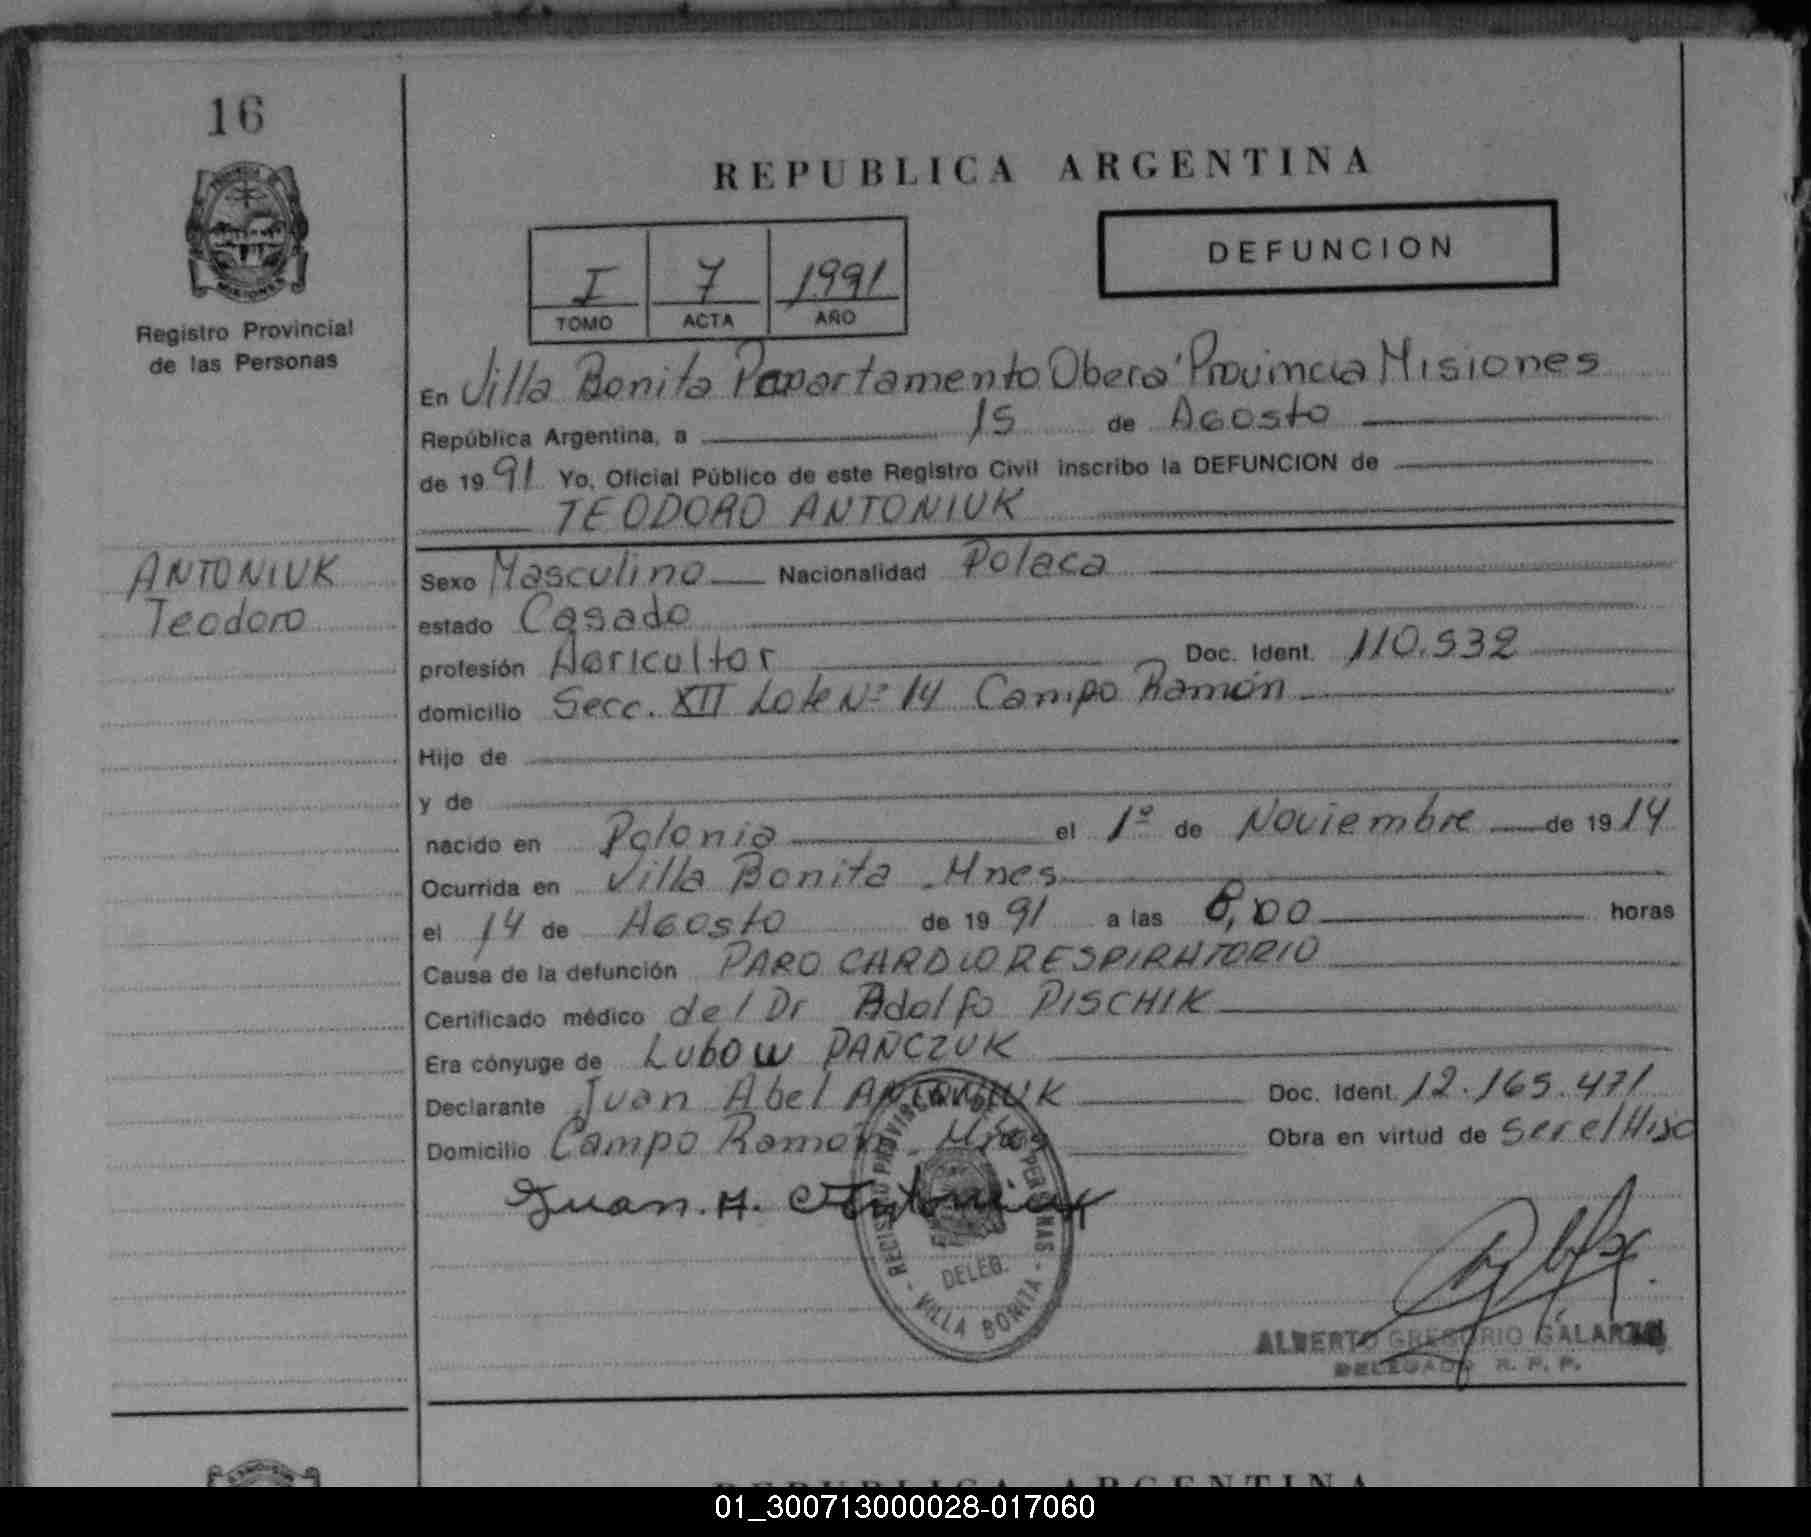 16
MISIONES
Registro Provincial
de las Personas
REPUBLICA ARGENTINA
I 7 1991
TOMO ACTA AÑO
DEFUNCION
En Villa Bonita Departamento Oberá Provincia Misiones
República Argentina, a 15 de Agosto
de 1991 Yo, Oficial Público de este Registro Civil inscribo la DEFUNCION de
TEODORO ANTONIUK
ANTONIUK
Teodoro
Sexo Masculino Nacionalidad Polaca
estado Casado
profesión Agricultor Doc. Ident. 110.532
domicilio Secc. XII Lote Nº 14 Campo Ramón
Hijo de
y de
nacido en Polonia el 1º de Noviembre de 1914
Ocurrida en Villa Bonita Mnes
el 14 de Agosto de 1991 a las 8,00 horas
Causa de la defunción PARO CARDIORESPIRATORIO
Certificado médico del Dr Adolfo PISCHIK
Era cónyuge de Lubow PAÑCZUK
Declarante Juan Abel ANTONIUK Doc. Ident. 12.165.471
Domicilio Campo Ramón Mnes Obra en virtud de ser el Hijo
Juan. A. Antoniuk
REGISTRO PROVINCIAL DE LAS PERSONAS
DELEG.
VILLA BONITA
ALBERTO GREGORIO GALARZA
DELEGADO R. P. P.
REPUBLICA ARGENTINA
01_300713000028-017060